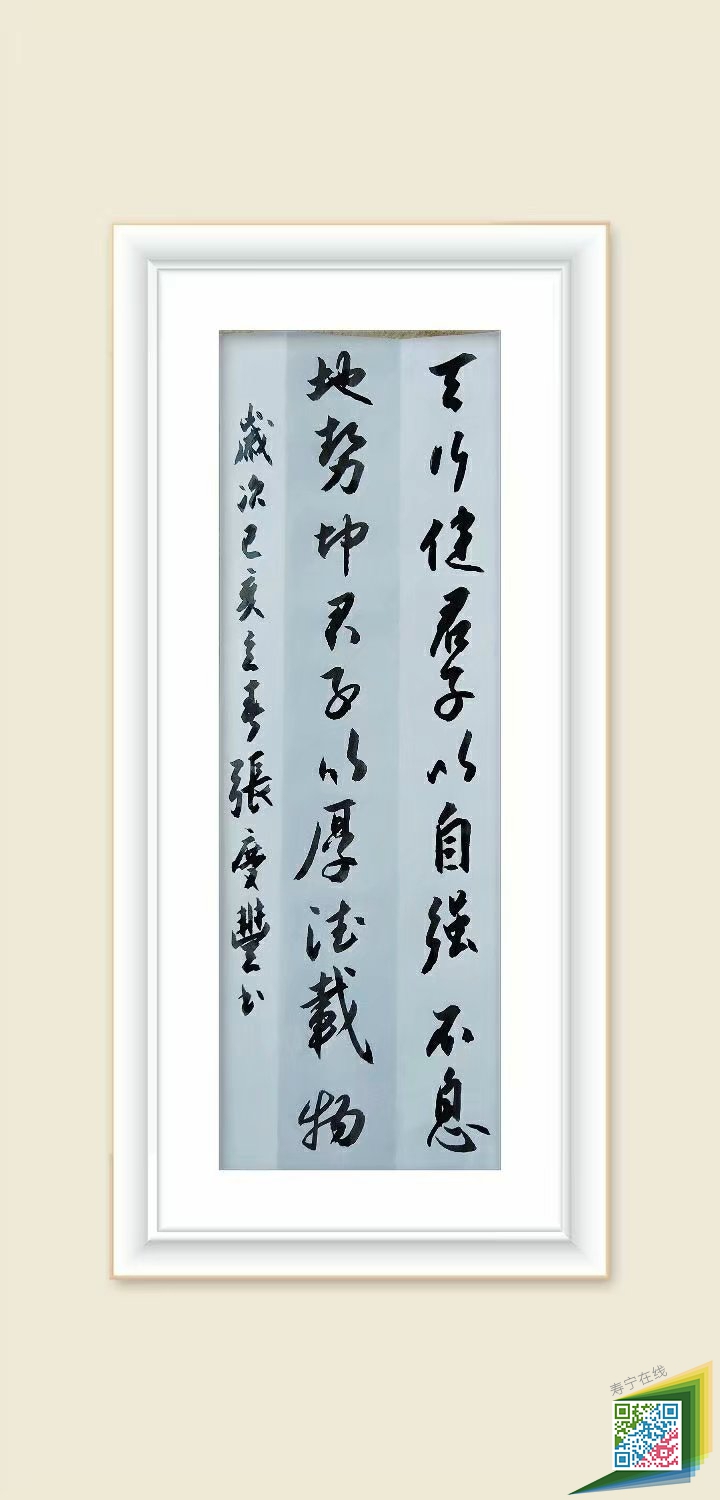 天行健君子以自强不息
地势坤君子以厚德載物
歲次己亥立春張慶豐书
寿宁在线